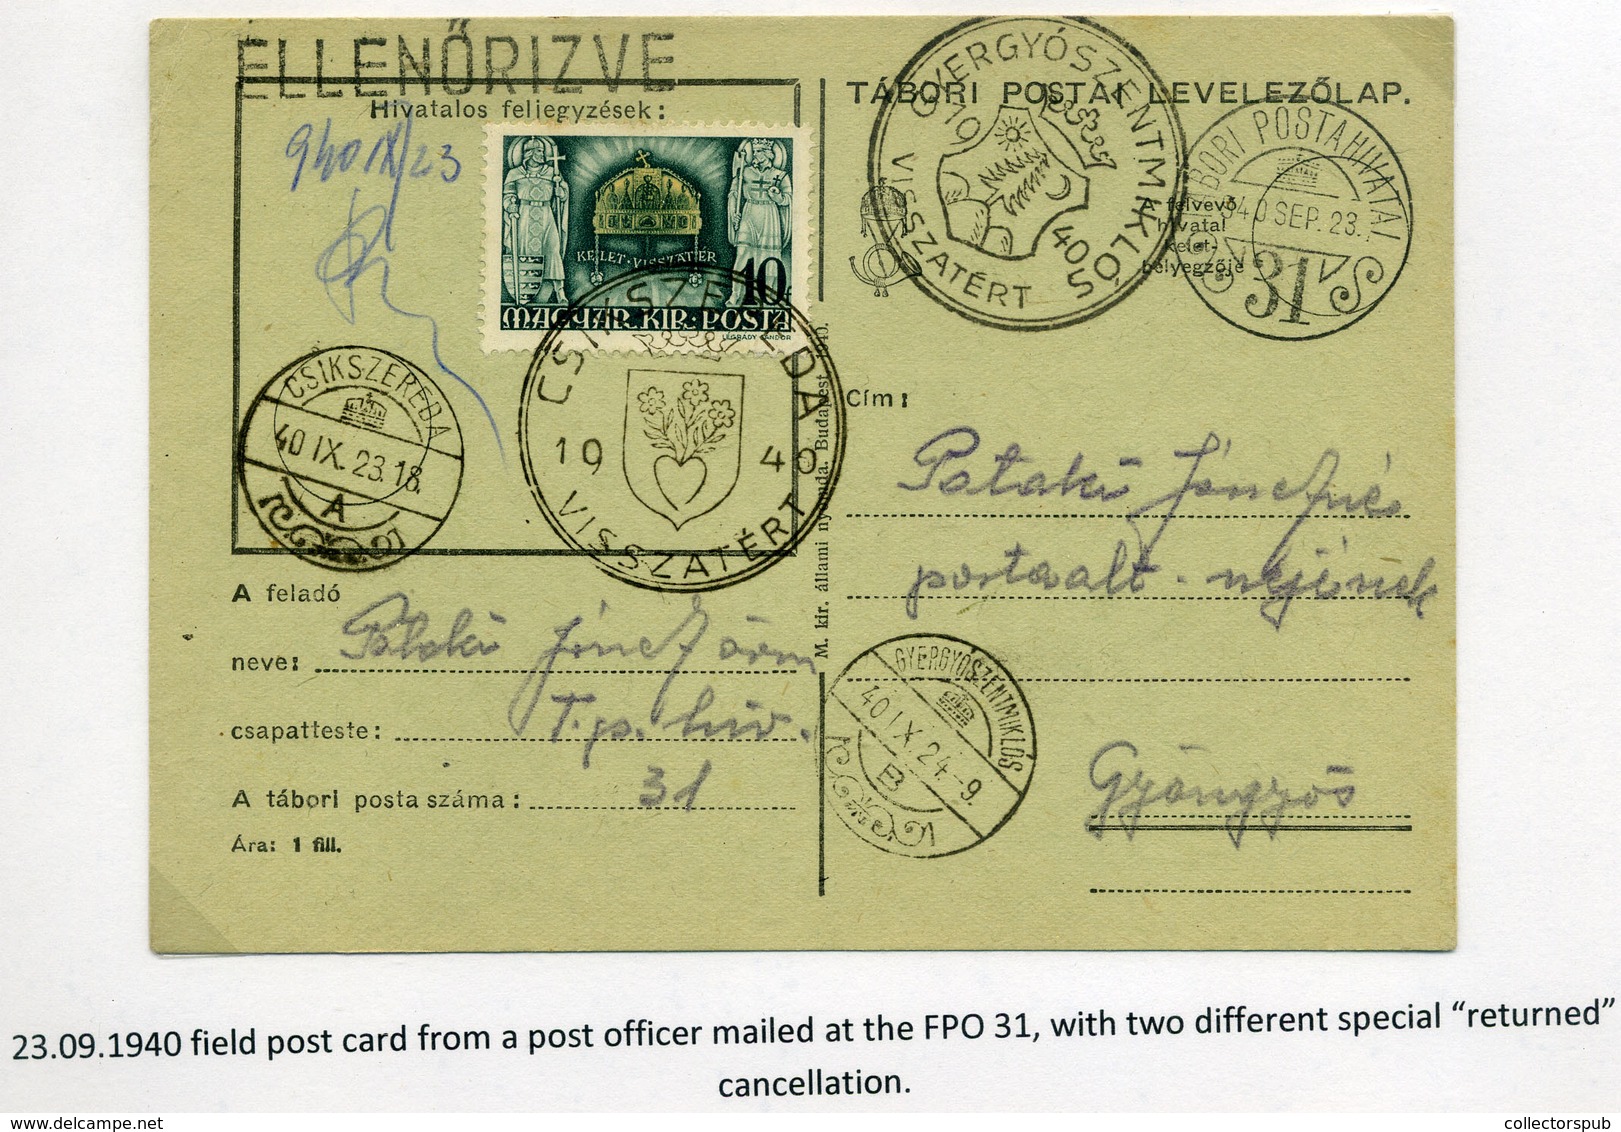 ELLENŐRIZVE
Hivatalos feljegyzések:
940 IX/23
KELET·VISSZATÉR
10f
MAGYAR·KIR·POSTA
LÉGRÁDY SÁNDOR
CSIKSZEREDA
40 IX. 23. 18.
A
CSIKSZEREDA
19 40
VISSZATÉRT
A feladó
neve: Pataki József
csapatteste: T. ps. hiv.
A tábori posta száma: 31
Ára: 1 fill.
M. kir. állami nyomda. Budapest 1940.
TÁBORI POSTAI LEVELEZŐLAP.
GYERGYÓSZENTMIKLÓS
VISSZATÉRT
A felvevő
hivatal
kelet-
bélyegzője
TÁBORI POSTAHIVATAL
940 SEP. 23.
31
Cím:
Pataki Józsefné
postaalt. nejének
Gyöngyös
GYERGYÓSZENTMIKLÓS
40 IX. 24.-9.
B
23.09.1940 field post card from a post officer mailed at the FPO 31, with two different special “returned”
cancellation.
collectorspub